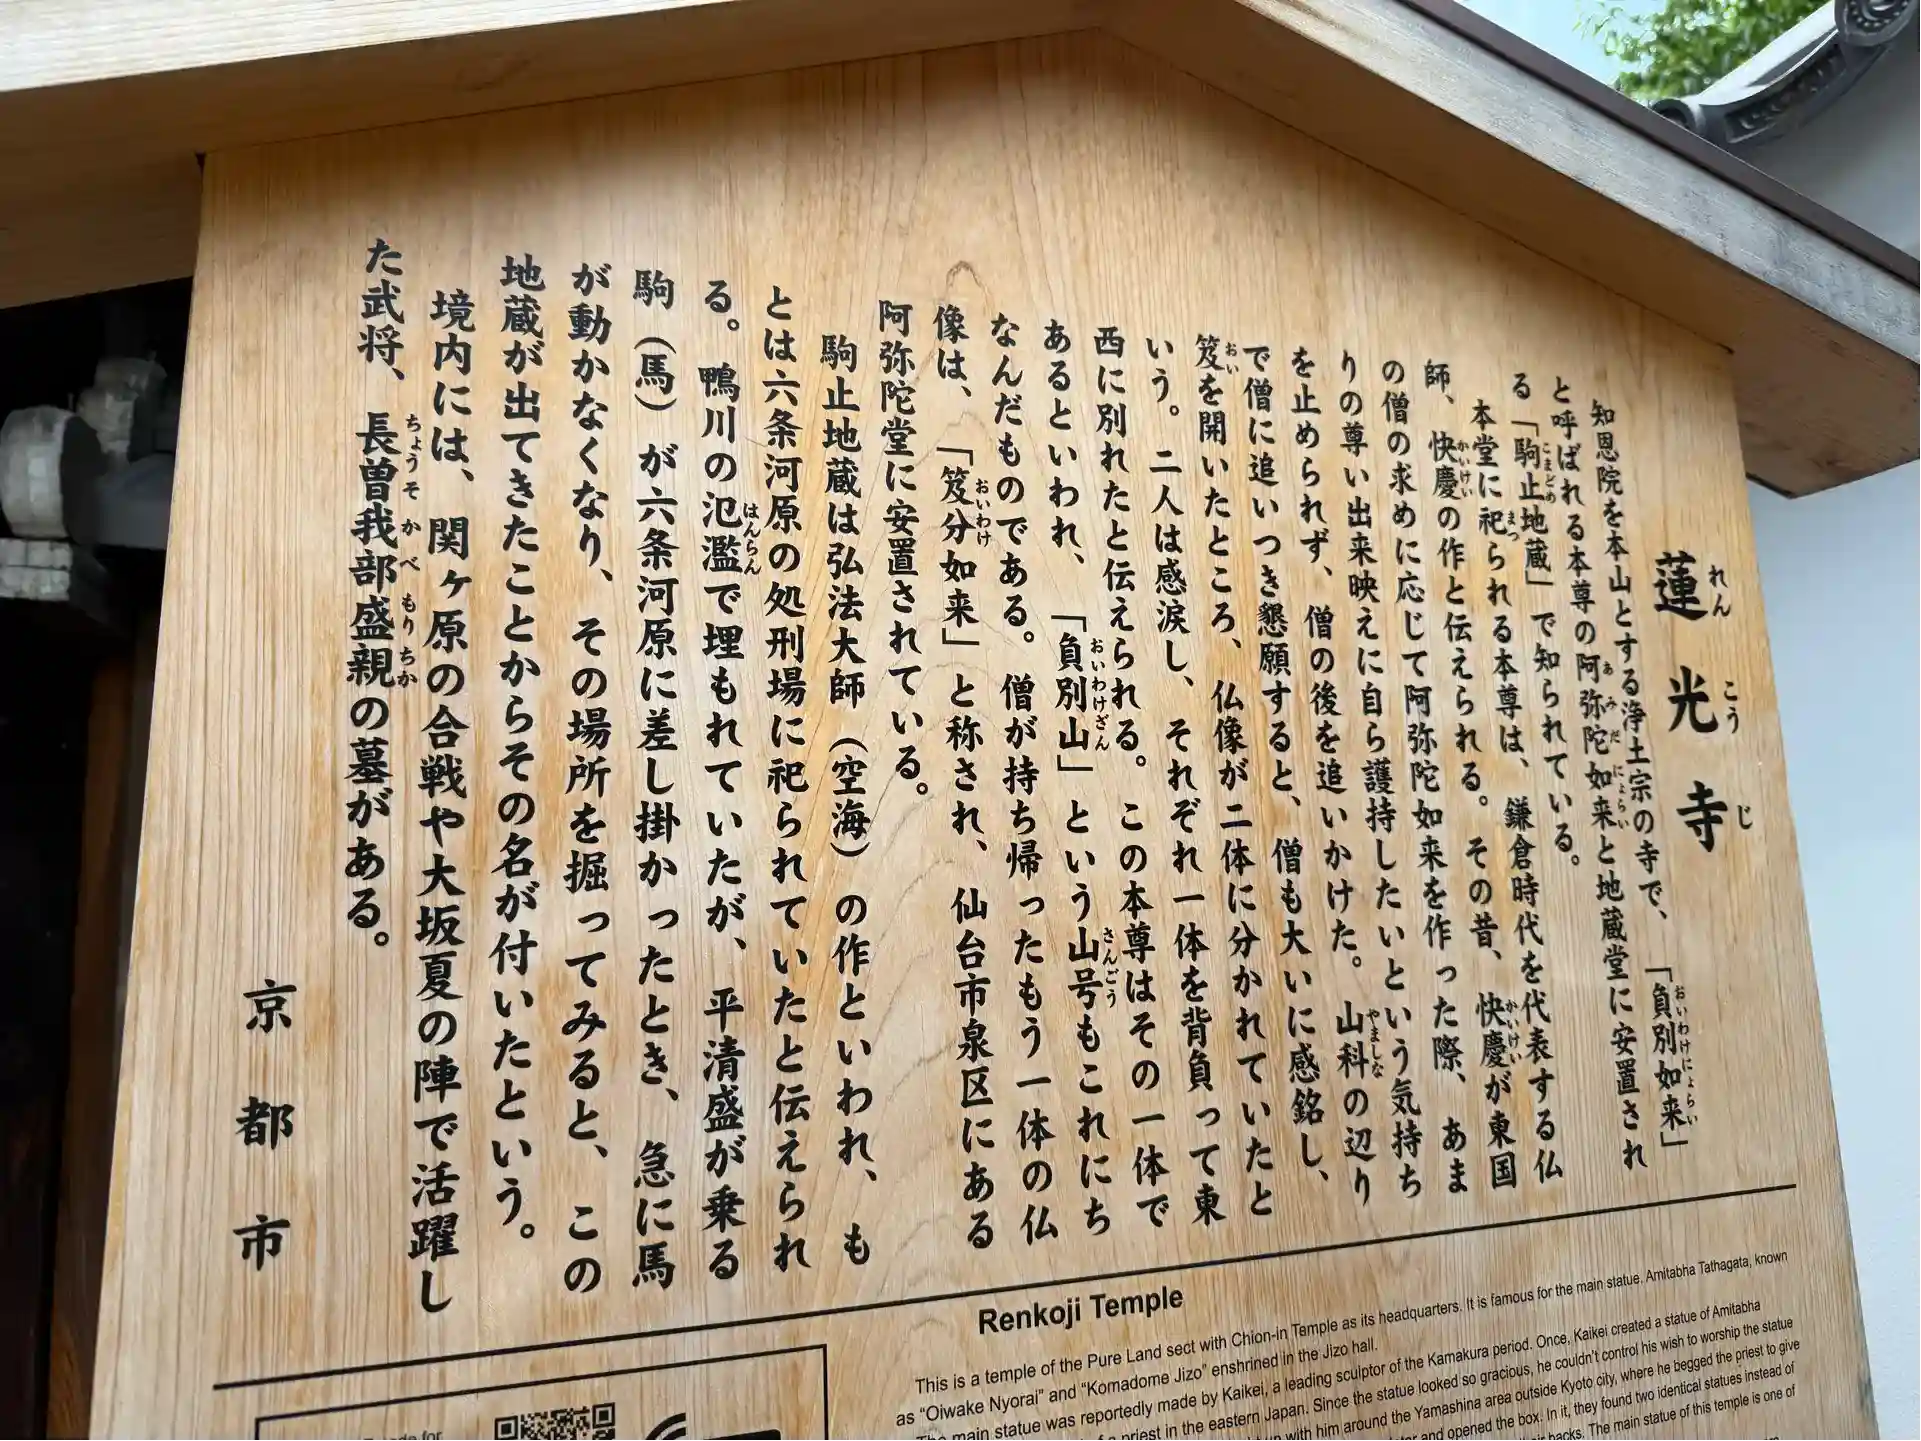 蓮光寺
れんこうじ
知恩院を本山とする浄土宗の寺で、「負別如来」
おいわけにょらい
と呼ばれる本尊の阿弥陀如来と地蔵堂に安置され
あみだにょらい
る「駒止地蔵」で知られている。
こまどめ
本堂に祀られる本尊は、鎌倉時代を代表する仏
まつ
師、快慶の作と伝えられる。その昔、快慶が東国
かいけい かいけい
の僧の求めに応じて阿弥陀如来を作った際、あま
りの尊い出来映えに自ら護持したいという気持ち
を止められず、僧の後を追いかけた。山科の辺り
やましな
で僧に追いつき懇願すると、僧も大いに感銘し、
笈を開いたところ、仏像が二体に分かれていたと
おい
いう。二人は感涙し、それぞれ一体を背負って東
西に別れたと伝えられる。この本尊はその一体で
あるといわれ、「負別山」という山号もこれにち
おいわけざん さんごう
なんだものである。僧が持ち帰ったもう一体の仏
像は、「笈分如来」と称され、仙台市泉区にある
おいわけ
阿弥陀堂に安置されている。
駒止地蔵は弘法大師（空海）の作といわれ、も
とは六条河原の処刑場に祀られていたと伝えられ
る。鴨川の氾濫で埋もれていたが、平清盛が乗る
はんらん
駒（馬）が六条河原に差し掛かったとき、急に馬
が動かなくなり、その場所を掘ってみると、この
地蔵が出てきたことからその名が付いたという。
境内には、関ヶ原の合戦や大坂夏の陣で活躍し
た武将、長曽我部盛親の墓がある。
ちょうそかべもりちか
京都市
Renkoji Temple
This is a temple of the Pure Land sect with Chion-in Temple as its headquarters. It is famous for the main statue. Amitabha Tathagata, known
as “Oiwake Nyorai” and “Komadome Jizo” enshrined in the Jizo hall.
The main statue was reportedly made by Kaikei, a leading sculptor of the Kamakura period. Once, Kaikei created a statue of Amitabha
of a priest in the eastern Japan. Since the statue looked so gracious, he couldn't control his wish to worship the statue
up with him around the Yamashina area outside Kyoto city, where he begged the priest to give
and opened the box. In it, they found two identical statues instead of
backs. The main statue of this temple is one of